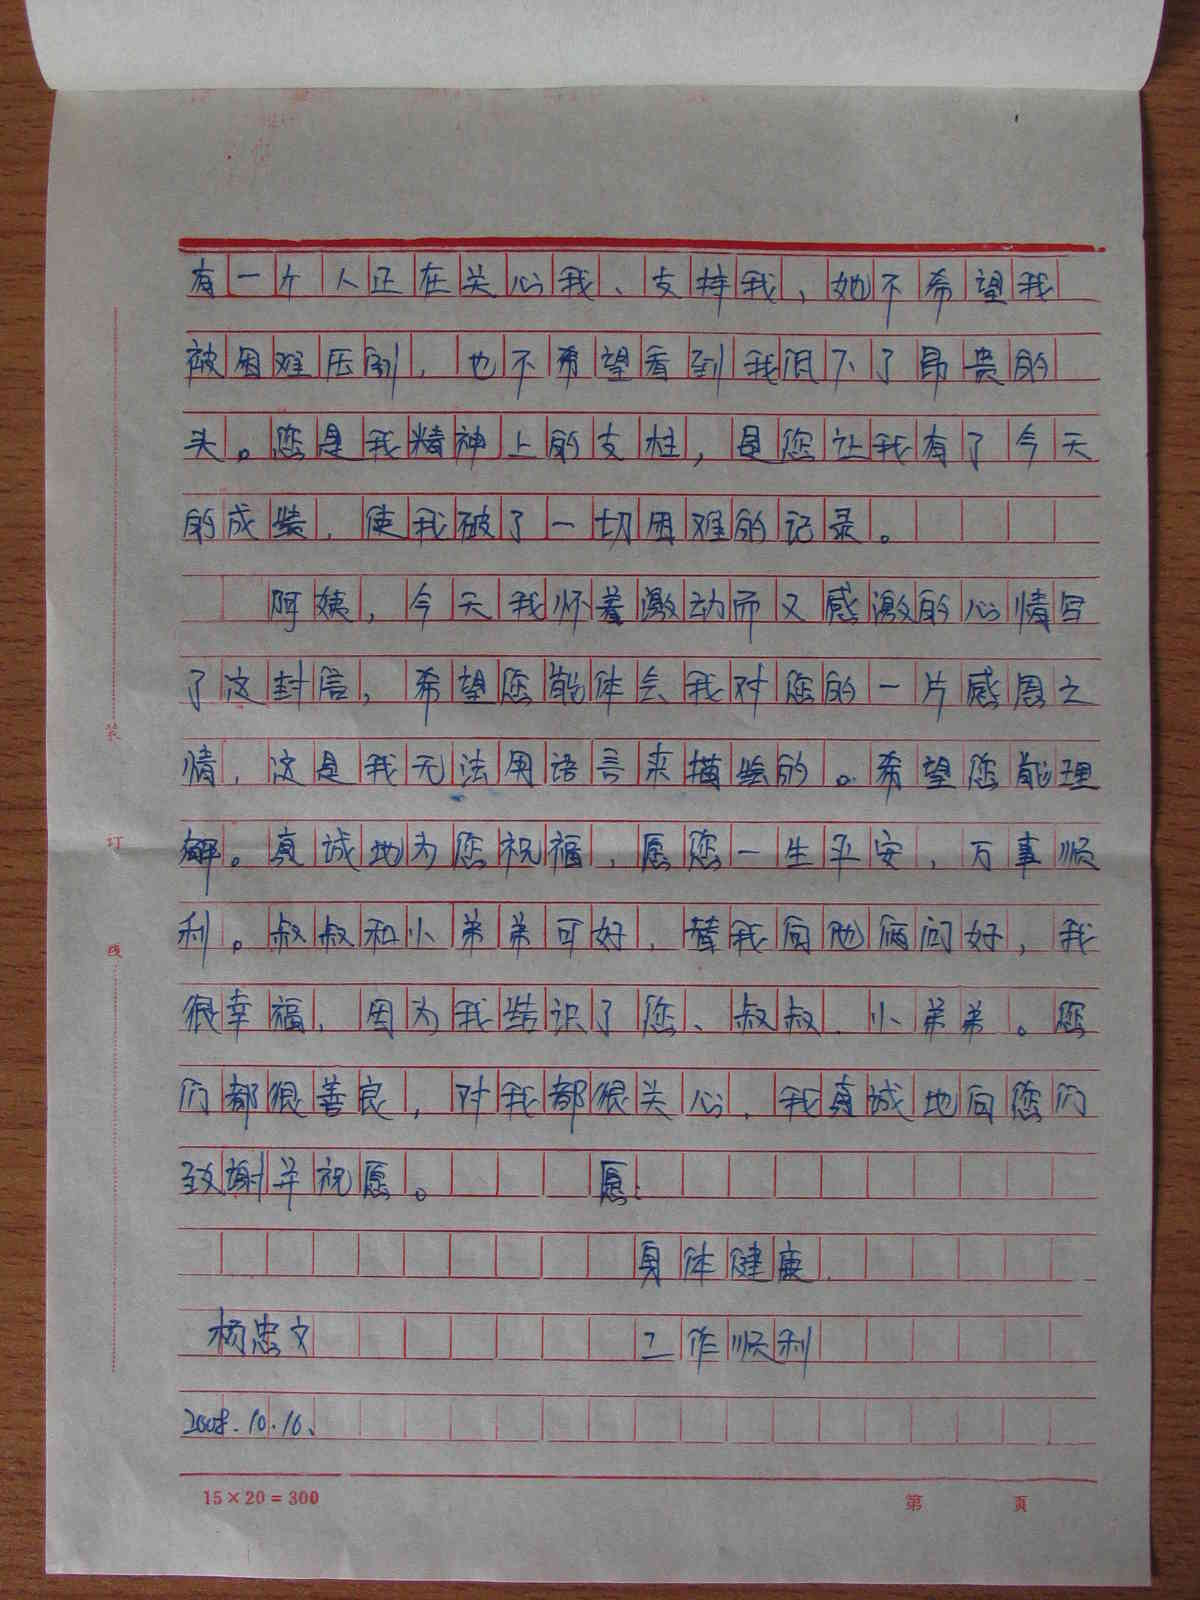 有一个人正在关心我、支持我，她不希望我
被困难压倒，也不希望看到我低下了昂贵的
头。您是我精神上的支柱，是您让我有了今天
的成绩，使我破了一切困难的记录。
阿姨，今天我怀着激动而又感激的心情写
了这封信，希望您能体会我对您的一片感恩之
情，这是我无法用语言来描绘的。希望您能理
解。真诚地为您祝福，愿您一生平安，万事顺
利。叔叔和小弟弟可好，替我向他俩问好，我
很幸福，因为我结识了您、叔叔、小弟弟。您
们都很善良，对我都很关心，我真诚地向您们
致谢并祝愿。 愿：
身体健康
杨忠文 工作顺利
2008.10.10、
装
订
线
15×20=300 第 页